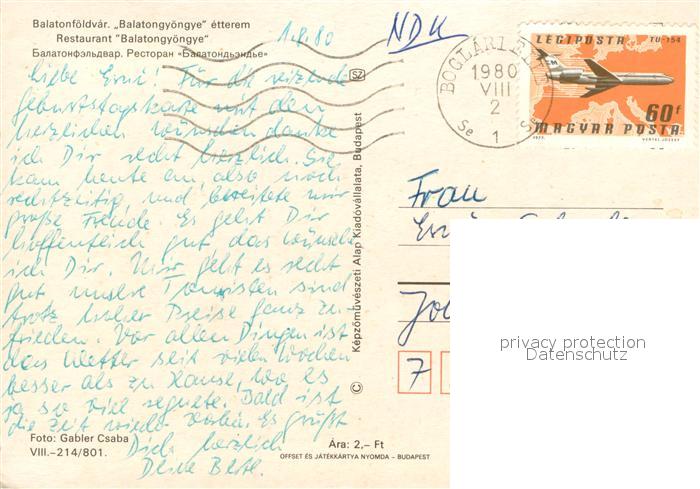 Balatonföldvár. „Balatongyöngye" étterem
Restaurant "Balatongyöngye"
Балатонфэльдвар. Ресторан «Балатондьэндье»
1.8.80
NDK
Liebe Erni! Für die reizende
Geburtstagskarte mit den
herzlichen Wünschen danke
ich Dir recht herzlich. Sie
kam heute an, also noch
rechtzeitig, und bereitete mir
große Freude. Es geht Dir
hoffentlich gut, das wünsche
ich Dir. Mir geht es recht
gut unsere Touristen sind
trotz hoher Preise ganz zu-
frieden. Vor allen Dingen ist
das Wetter seit vielen Wochen
besser als zu Hause, wo es
ja so viel regnete. Bald ist
die Zeit wieder vorbei. Es grüßt
Dich herzlich
Deine
SZ
Képzőművészeti Alap Kiadóvállalata, Budapest
©
BOGLÁRLELLE
1980
VIII
2
1
Se
LÉGIPOSTA TU-154
60f
MAGYAR POSTA
Frau
7
privacy protection
Datenschutz
Foto: Gabler Csaba
VIII.–214/801.
Ára: 2,– Ft
OFFSET ÉS JÁTÉKKÁRTYA NYOMDA – BUDAPEST